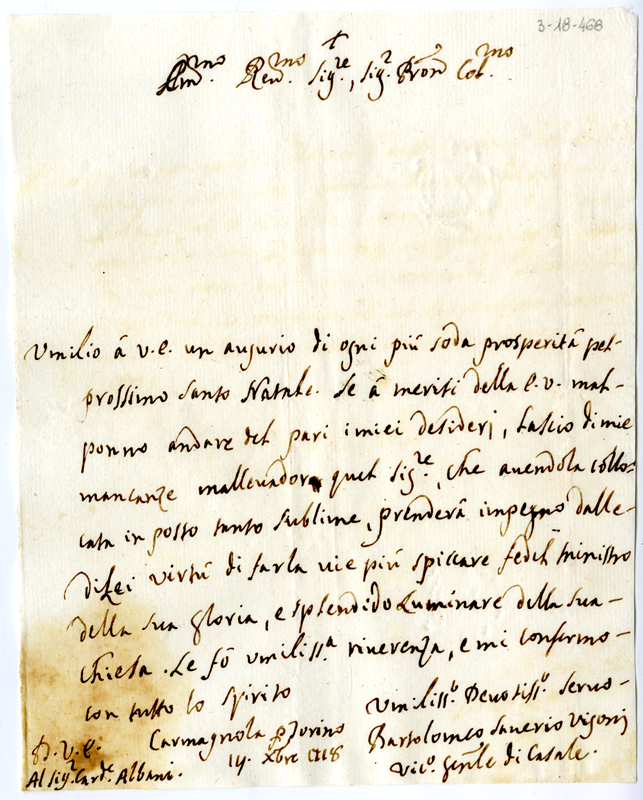 3-18-468
+
Em.mo Rev.mo Sig.re, Sig.r Pron Col.mo
Vmilio à V.E. un augurio di ogni più soda prosperità pel
prossimo Santo Natale. Se à meriti della E.V. mal
ponno andare del pari i miei desiderj, lascio di mie
mancanze mallevadore quel Sig.re, che avendola collo=
cata in posto tanto sublime, prenderà impegno dalle
di Lei virtù di farla vie più spiccare fedel Ministro
della sua gloria, e splendido Luminare della sua
Chiesa. Le fò vmiliss.a riverenza, e mi confermo
con tutto lo spirito
D.V.E.
Carmagnola p Torino
14. Xbre 1718
Al Sig.r Card.e Albani.
Vmiliss.o Devotiss.o Servo
Bartolomeo Saverio
Vic.o Gen.le di Casale.